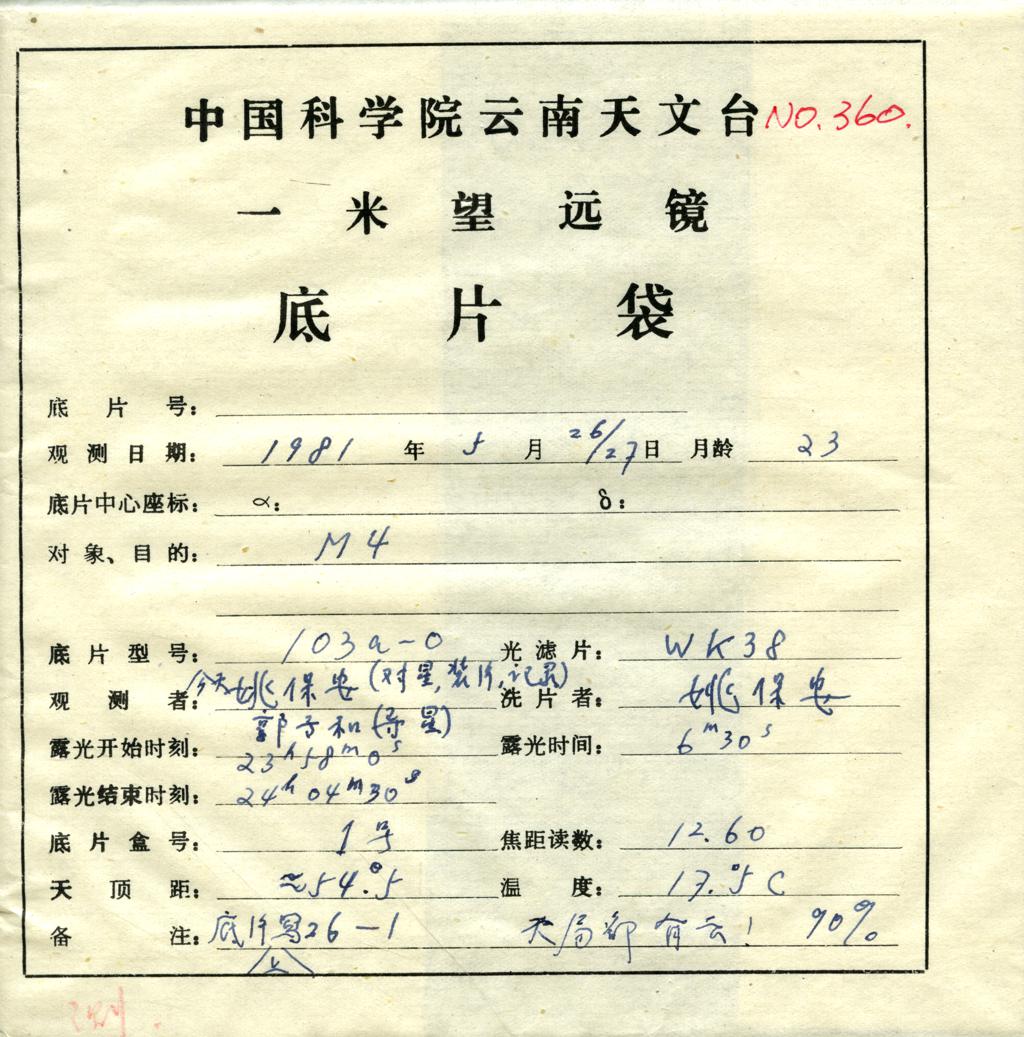 中国科学院云南天文台 NO.360.
一米望远镜
底片袋
底片号：
观测日期： 1981 年 5 月 26/27 日 月龄 23
底片中心座标： α： δ：
对象、目的： M4
底片型号： 103a-O 光滤片： WK38
观测者： 姚保安(对星,装片,记录) 洗片者： 姚保安
郭子和(导星)
露光开始时刻： 23h58m0s 露光时间： 6m30s
露光结束时刻： 24h04m30s
底片盒号： 1号 焦距读数： 12.60
天顶距： ≈54°.5 温度： 17.°5C
备注： 底片写26-1 天局部有云! 90%
上